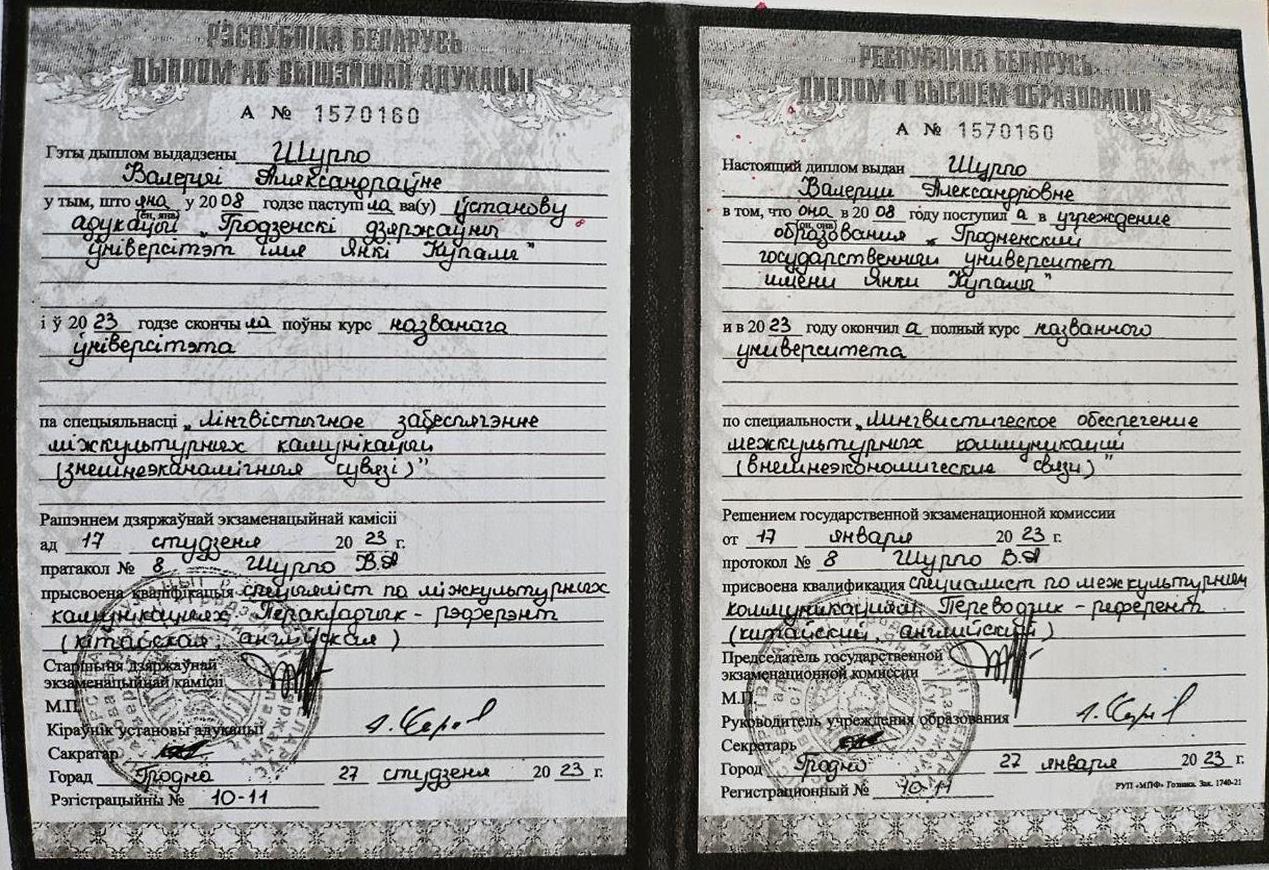 РЭСПУБЛІКА БЕЛАРУСЬ
ДЫПЛОМ АБ ВЫШЭЙШАЙ АДУКАЦЫІ
А № 1570160
Гэты дыплом выдадзены Шурпо
Валерыі Аляксандраўне
у тым, што яна у 20 08 годзе паступіла ва(у) ўстанову
(ён, яна)
адукацыі „Гродзенскі дзяржаўны
ўніверсітэт імя Янкі Купалы"
і ў 20 23 годзе скончыла поўны курс названага
ўніверсітэта
па спецыяльнасці „Лінгвістычнае забеспячэнне
міжкультурных камунікацый
(знешнеэканамічныя сувязі)"
Рашэннем дзяржаўнай экзаменацыйнай камісіі
ад 17 студзеня 20 23 г.
пратакол № 8 Шурпо В.А
прысвоена кваліфікацыя спецыяліст па міжкультурных
камунікацыях. Перакладчык - рэферэнт
(кітайская, англійская)
Старшыня дзяржаўнай
экзаменацыйнай камісіі
М.П.
Кіраўнік установы адукацыі
Сакратар
Горад Гродна 27 студзеня 20 23 г.
Рэгістрацыйны № 10-11
РЕСПУБЛИКА БЕЛАРУСЬ
ДИПЛОМ О ВЫСШЕМ ОБРАЗОВАНИИ
А № 1570160
Настоящий диплом выдан Шурпо
Валерии Александровне
в том, что она в 20 08 году поступила в учреждение
(он, она)
образования „Гродненский
государственный университет
имени Янки Купалы"
и в 20 23 году окончила полный курс названного
университета
по специальности „Лингвистическое обеспечение
межкультурных коммуникаций
(внешнеэкономические связи)"
Решением государственной экзаменационной комиссии
от 17 января 20 23 г.
протокол № 8 Шурпо В.А
присвоена квалификация специалист по межкультурным
коммуникациям. Переводчик - референт
(китайский, английский)
Председатель государственной
экзаменационной комиссии
М.П.
Руководитель учреждения образования
Секретарь
Город Гродно 27 января 20 23 г.
Регистрационный № 10-11
РУП «МПФ» Гознака. Зак. 1740-21